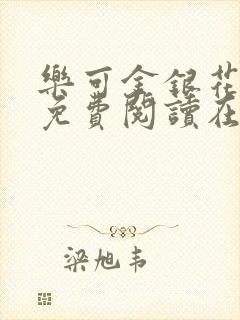 樂可金銀花
免費閱讀在
梁旭韦